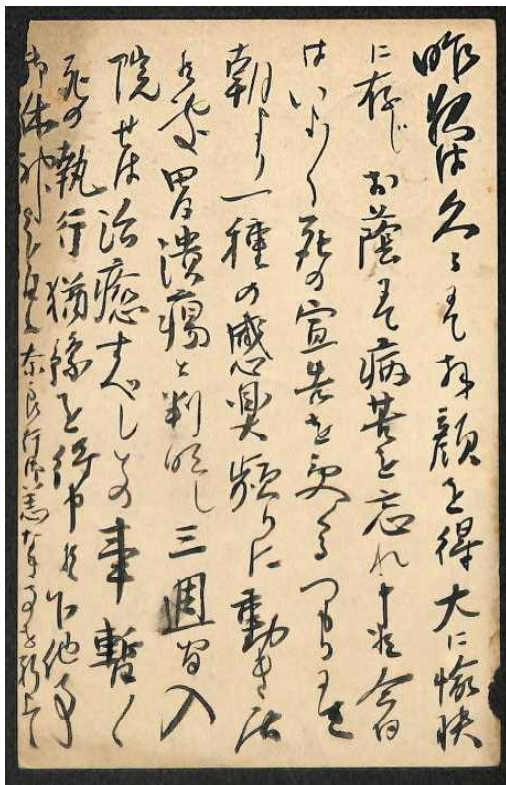 昨夜は久々にて拝顔を得大に愉快
に存じお蔭にて病苦を忘れ申候今日
はいよ〱死の宣告を受くるつもりにて
朝より一種の感興頻りに動き居
候処胃潰瘍と判明し三週間入
院せば治癒すべしとの事暫く
死の執行猶予を得申候
奈良行